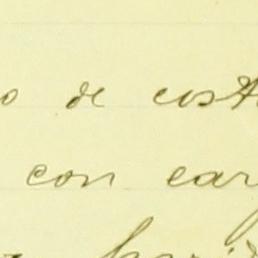 o de cost
con car